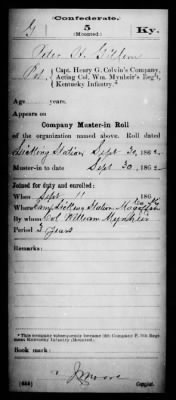 Confederate.
G 5 Ky.
(Mounted.)
Peter
Pvt., Capt. Henry G. Colvin's Company,
Acting Col. Wm. Mynheir's Reg't,
Kentucky Infantry.*
Age years.
Appears on
Company Muster-in Roll
of the organization named above. Roll dated
Licking Station Sept 30, 186 2
Muster-in to date Sept 30, 186 2
Joined for duty and enrolled:
When Sept 11, 186
Where Camp Licking Station Magoffin
By whom Col William Mynheir
Period 3 years
Remarks:
*This company subsequently became Company 5th Reg't
Kentucky Infantry (Mounted).
Book mark:
(656) Copyist.